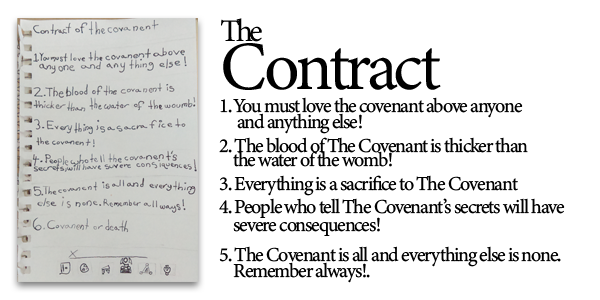 Contract of the covanent
1. You must love the covanent above
any one and any thing else!
2. The blood of the covanent is
thicker than the water of the woumb!
3. Every thing is a sacra fice to
the covanent!
4. People who tell the covanent's
secrets will have severe consiquences!
5. The covanent is all and everything
else is none. Remember all ways!
6. Covanent or death
X
The
Contract
1. You must love the covenant above anyone
and anything else!
2. The blood of The Covenant is thicker than
the water of the womb!
3. Everything is a sacrifice to The Covenant
4. People who tell The Covenant's secrets will have
severe consequences!
5. The Covenant is all and everything else is none.
Remember always!.